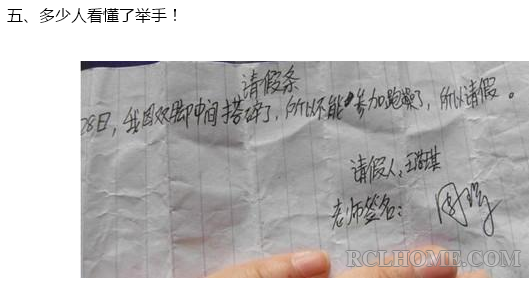 五、多少人看懂了举手！
请假条
28日，我因双脚中间搭碎了，所以不能参加跑操了，所以请假。
请假人：王
老师签名：
RCLHOME.COM